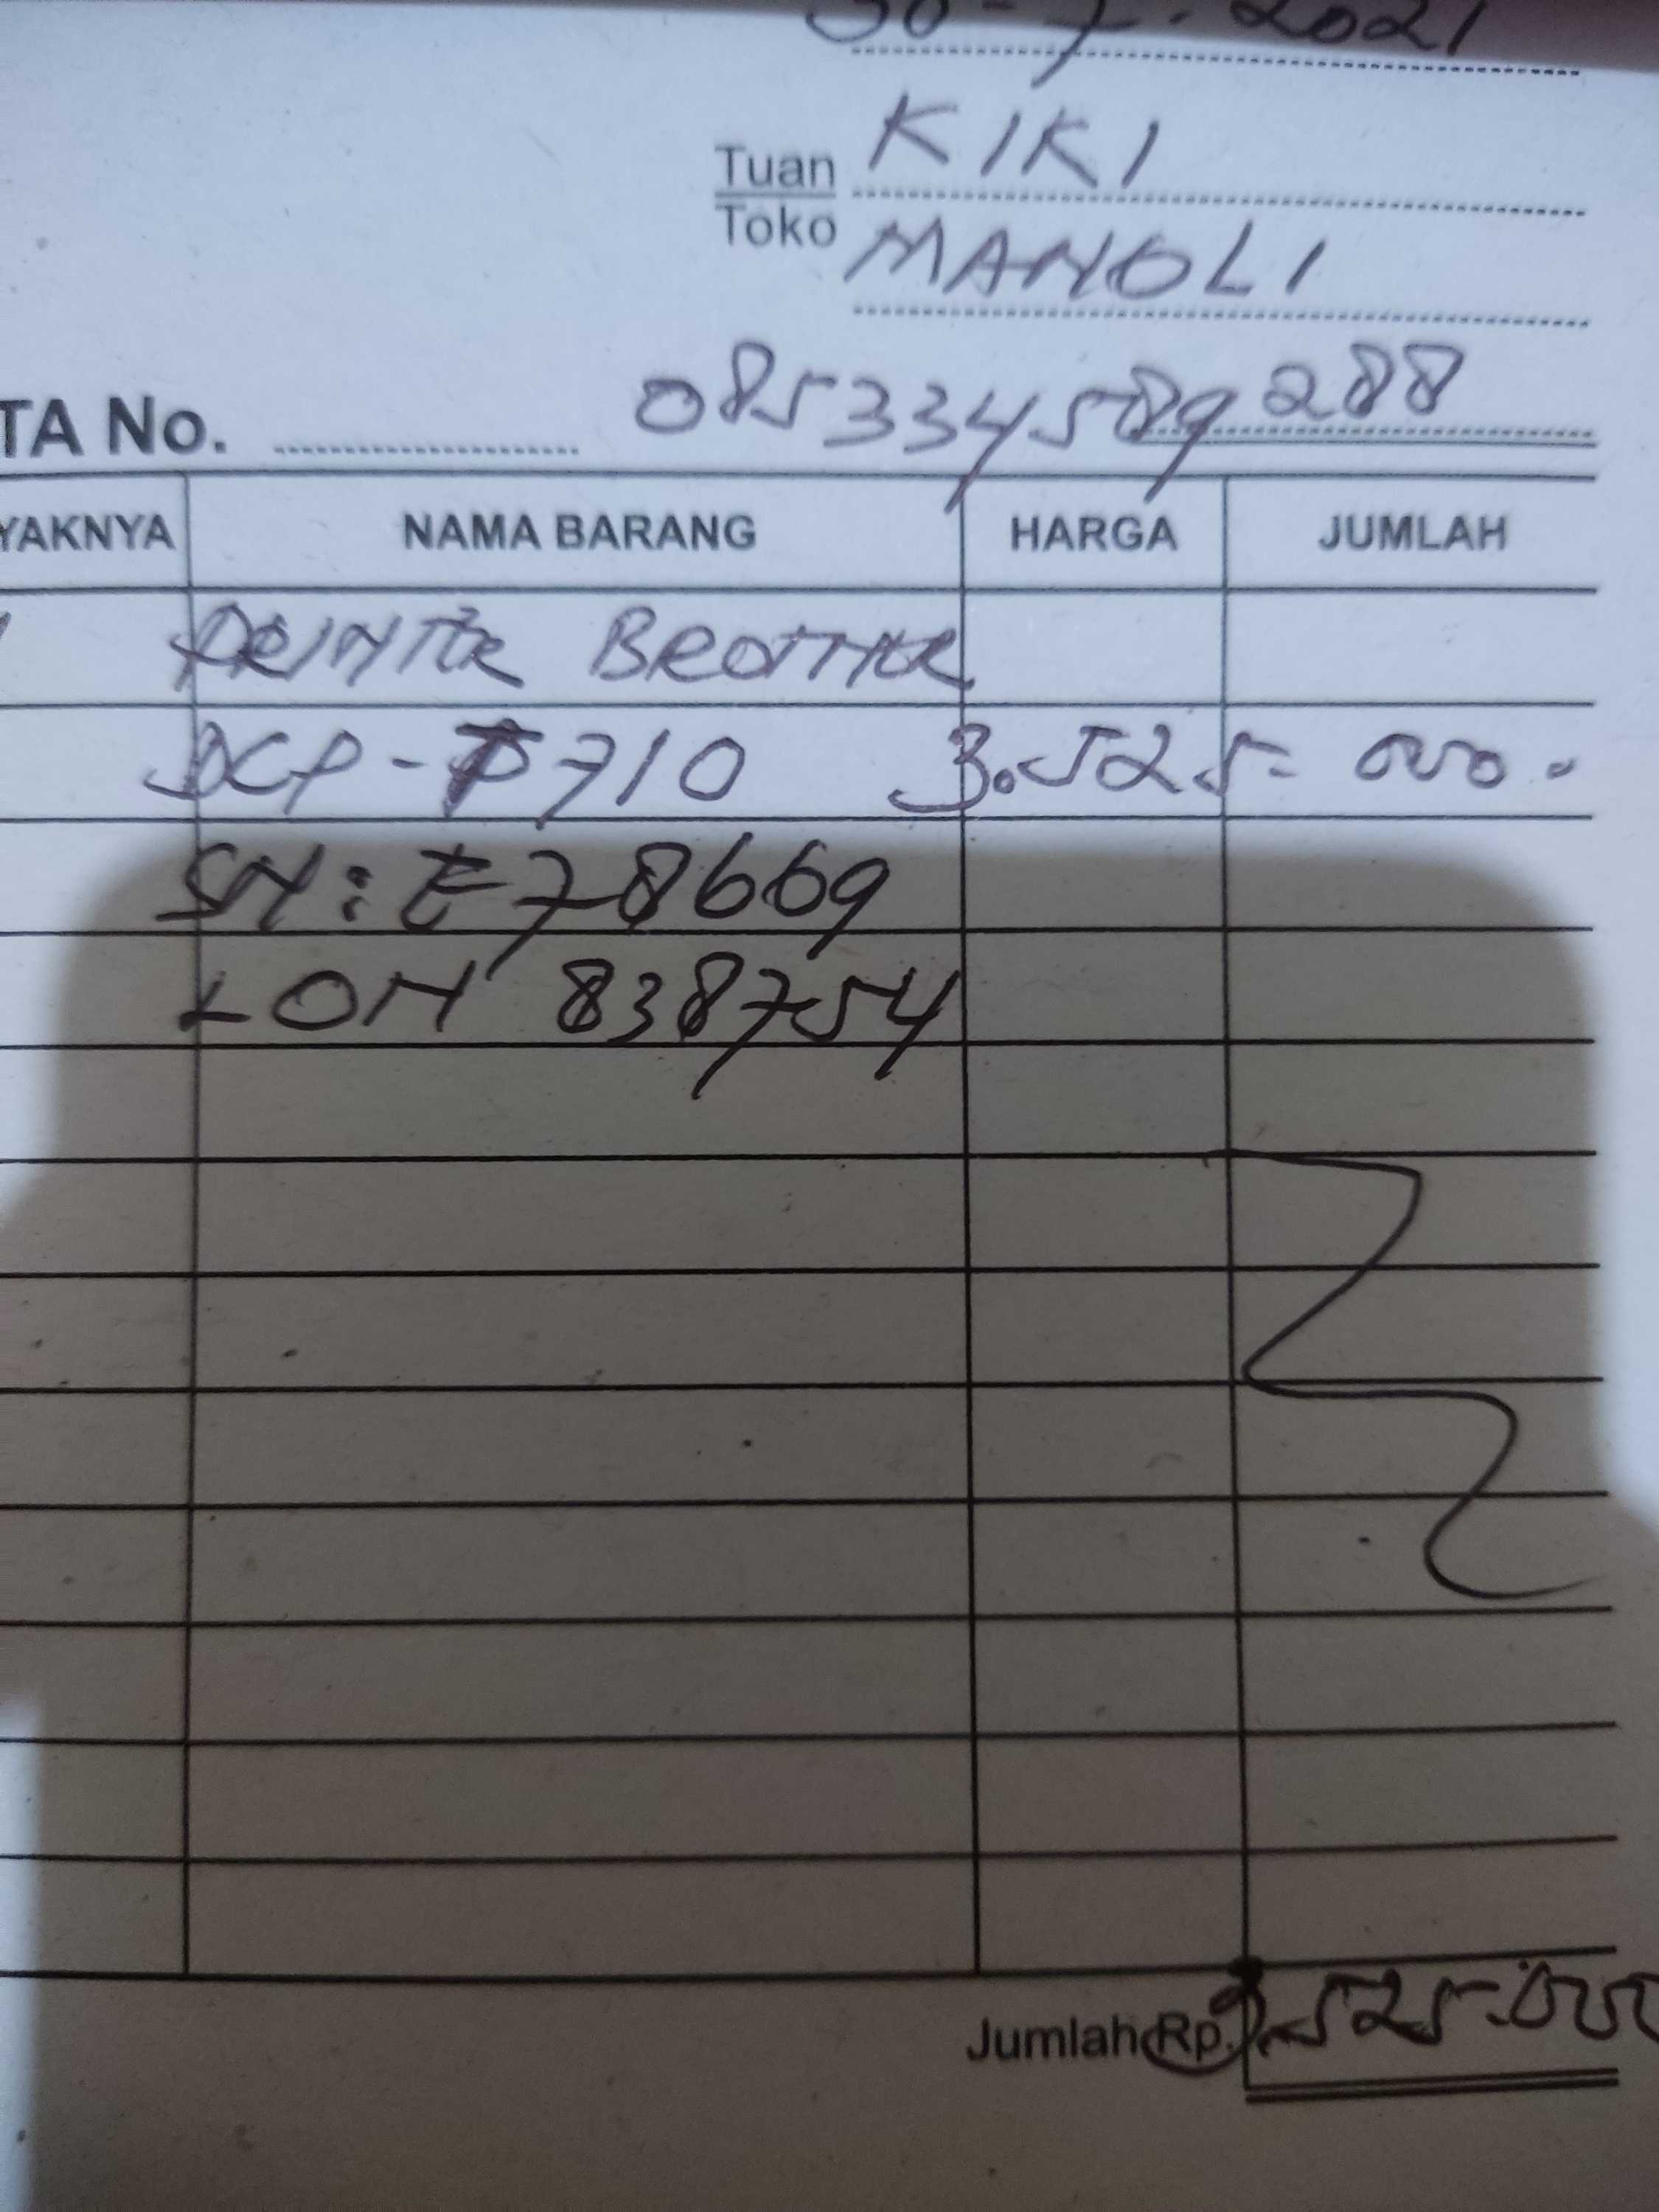 30-7-2021
Tuan KIKI
Toko MANOLI
TA No. 085334589288
YAKNYA NAMA BARANG HARGA JUMLAH
PRINTER BROTHER
DCP-T710 3.525.000.
SN: E78669
LON 838754
Jumlah Rp. 3.525.000